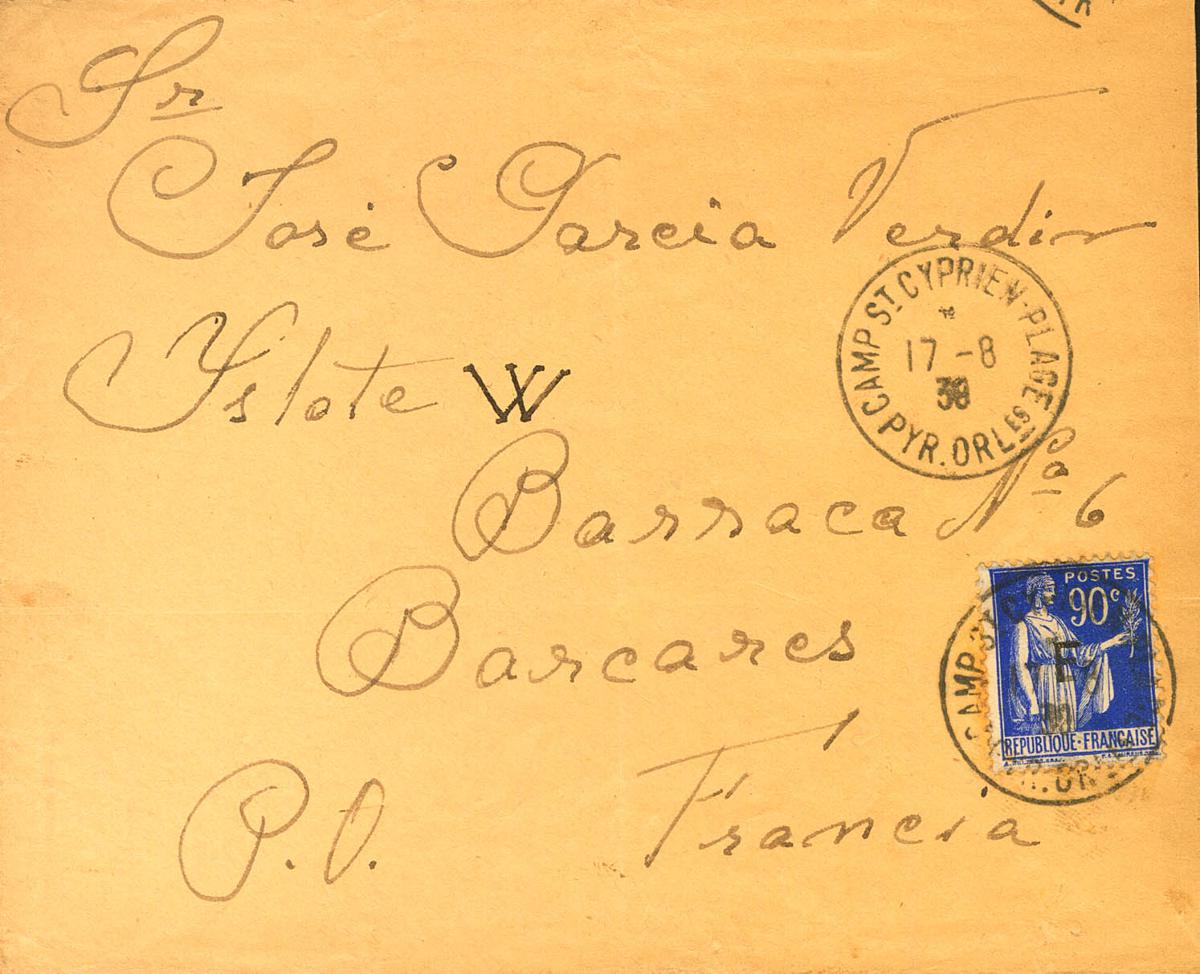 Sr
José Garcia Verdin
Yslote W
Barraca No 6
Barcares
P.O. Francia
CAMP ST CYPRIEN-PLAGE
17 -8
38
PYR. ORLES
POSTES
90c
E
REPUBLIQUE-FRANÇAISE
CAMP ST C